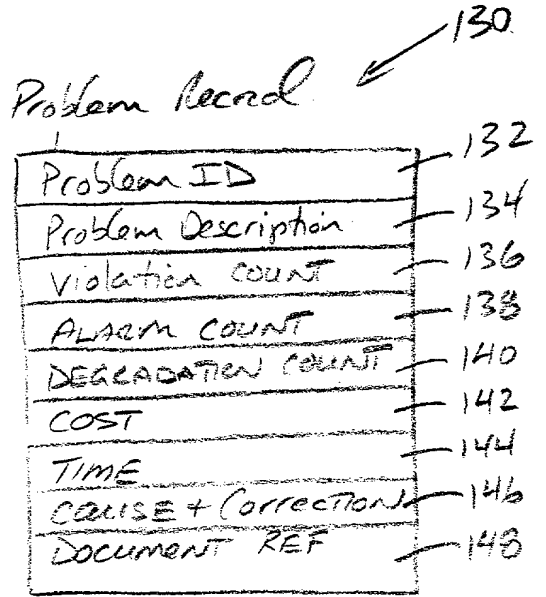 130
Problem Record
Problem ID 132
Problem Description 134
Violation COUNT 136
ALARM COUNT 138
DEGRADATION COUNT 140
COST 142
TIME 144
CAUSE + CORRECTION 146
DOCUMENT REF 148